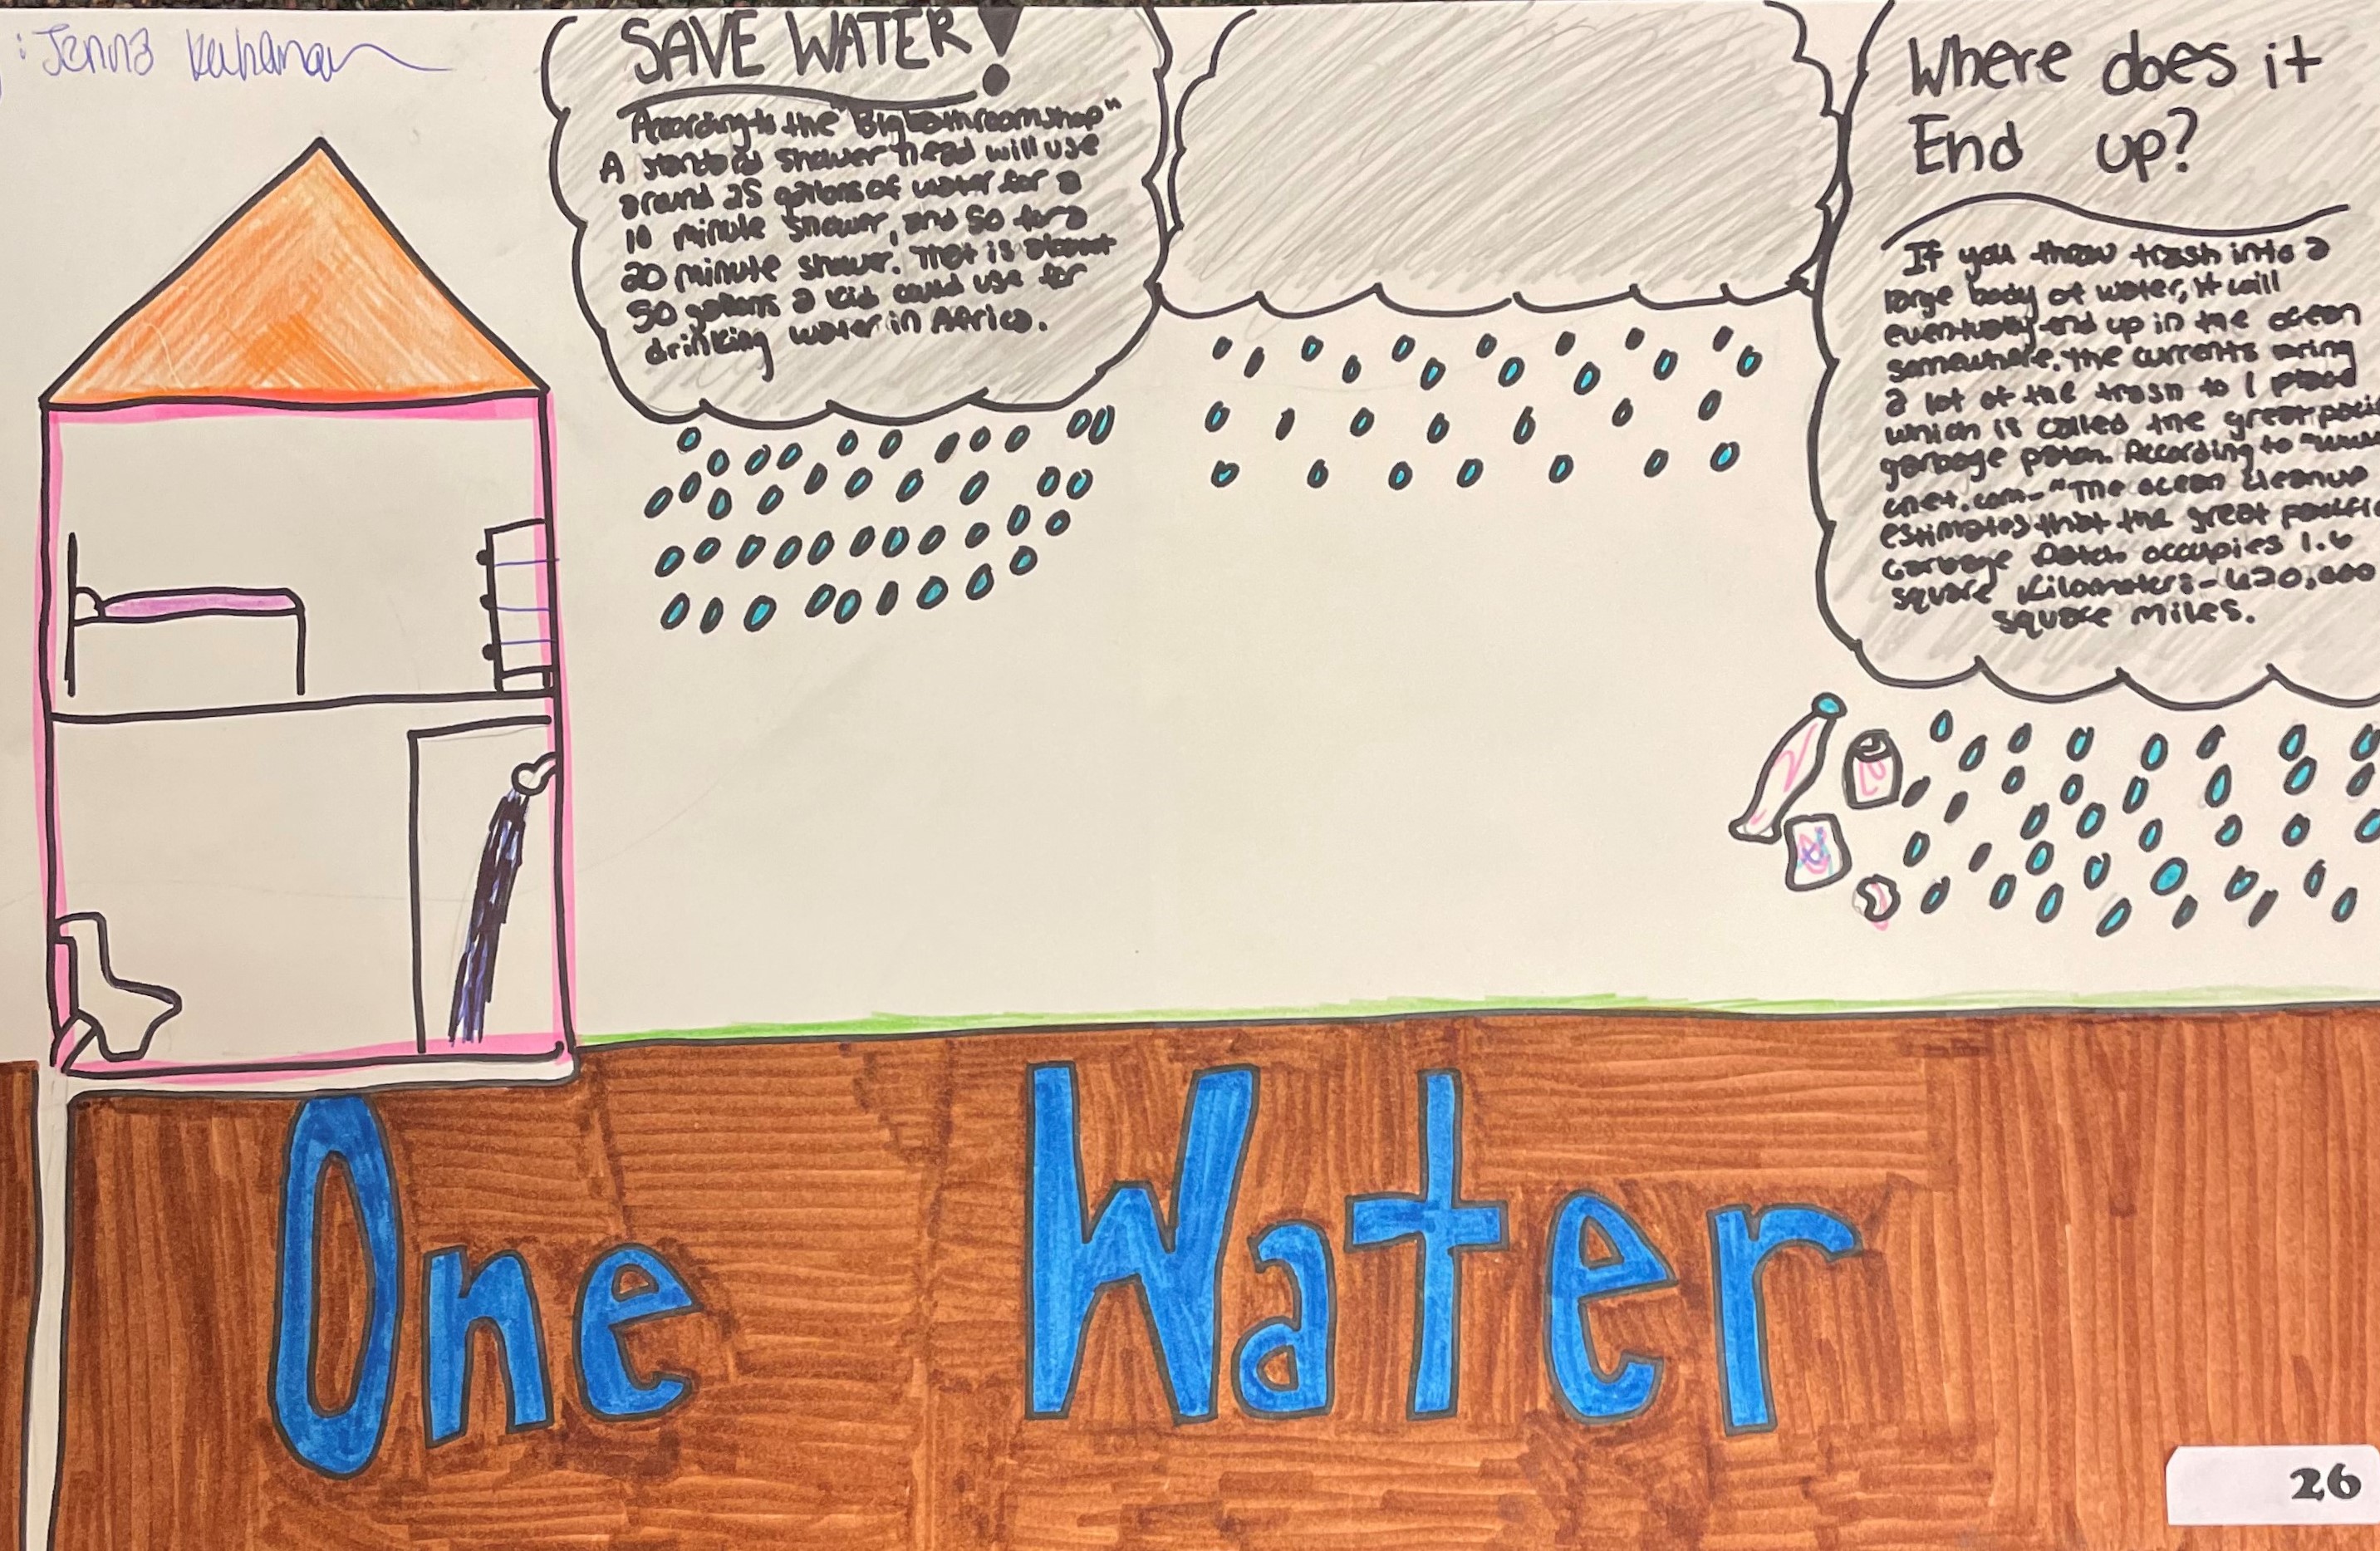 : Jenna
SAVE WATER!
According to the "Bigbathroomshop"
A standard shower head will use
around 25 gallons of water for a
10 minute shower, and 50 for a
20 minute shower. That is about
50 gallons a kid could use for
drinking water in Africa.
Where does it
End up?
If you throw trash into a
large body of water, it will
eventually end up in the ocean
somewhere. the currents bring
a lot of the trash to 1 place
which is called the great
garbage patch. According to
cnet.com- "The ocean cleanup
estimates that the great pacific
Garbage Patch occupies 1.6
square Kilometers - 620,000
square miles.
One Water
26